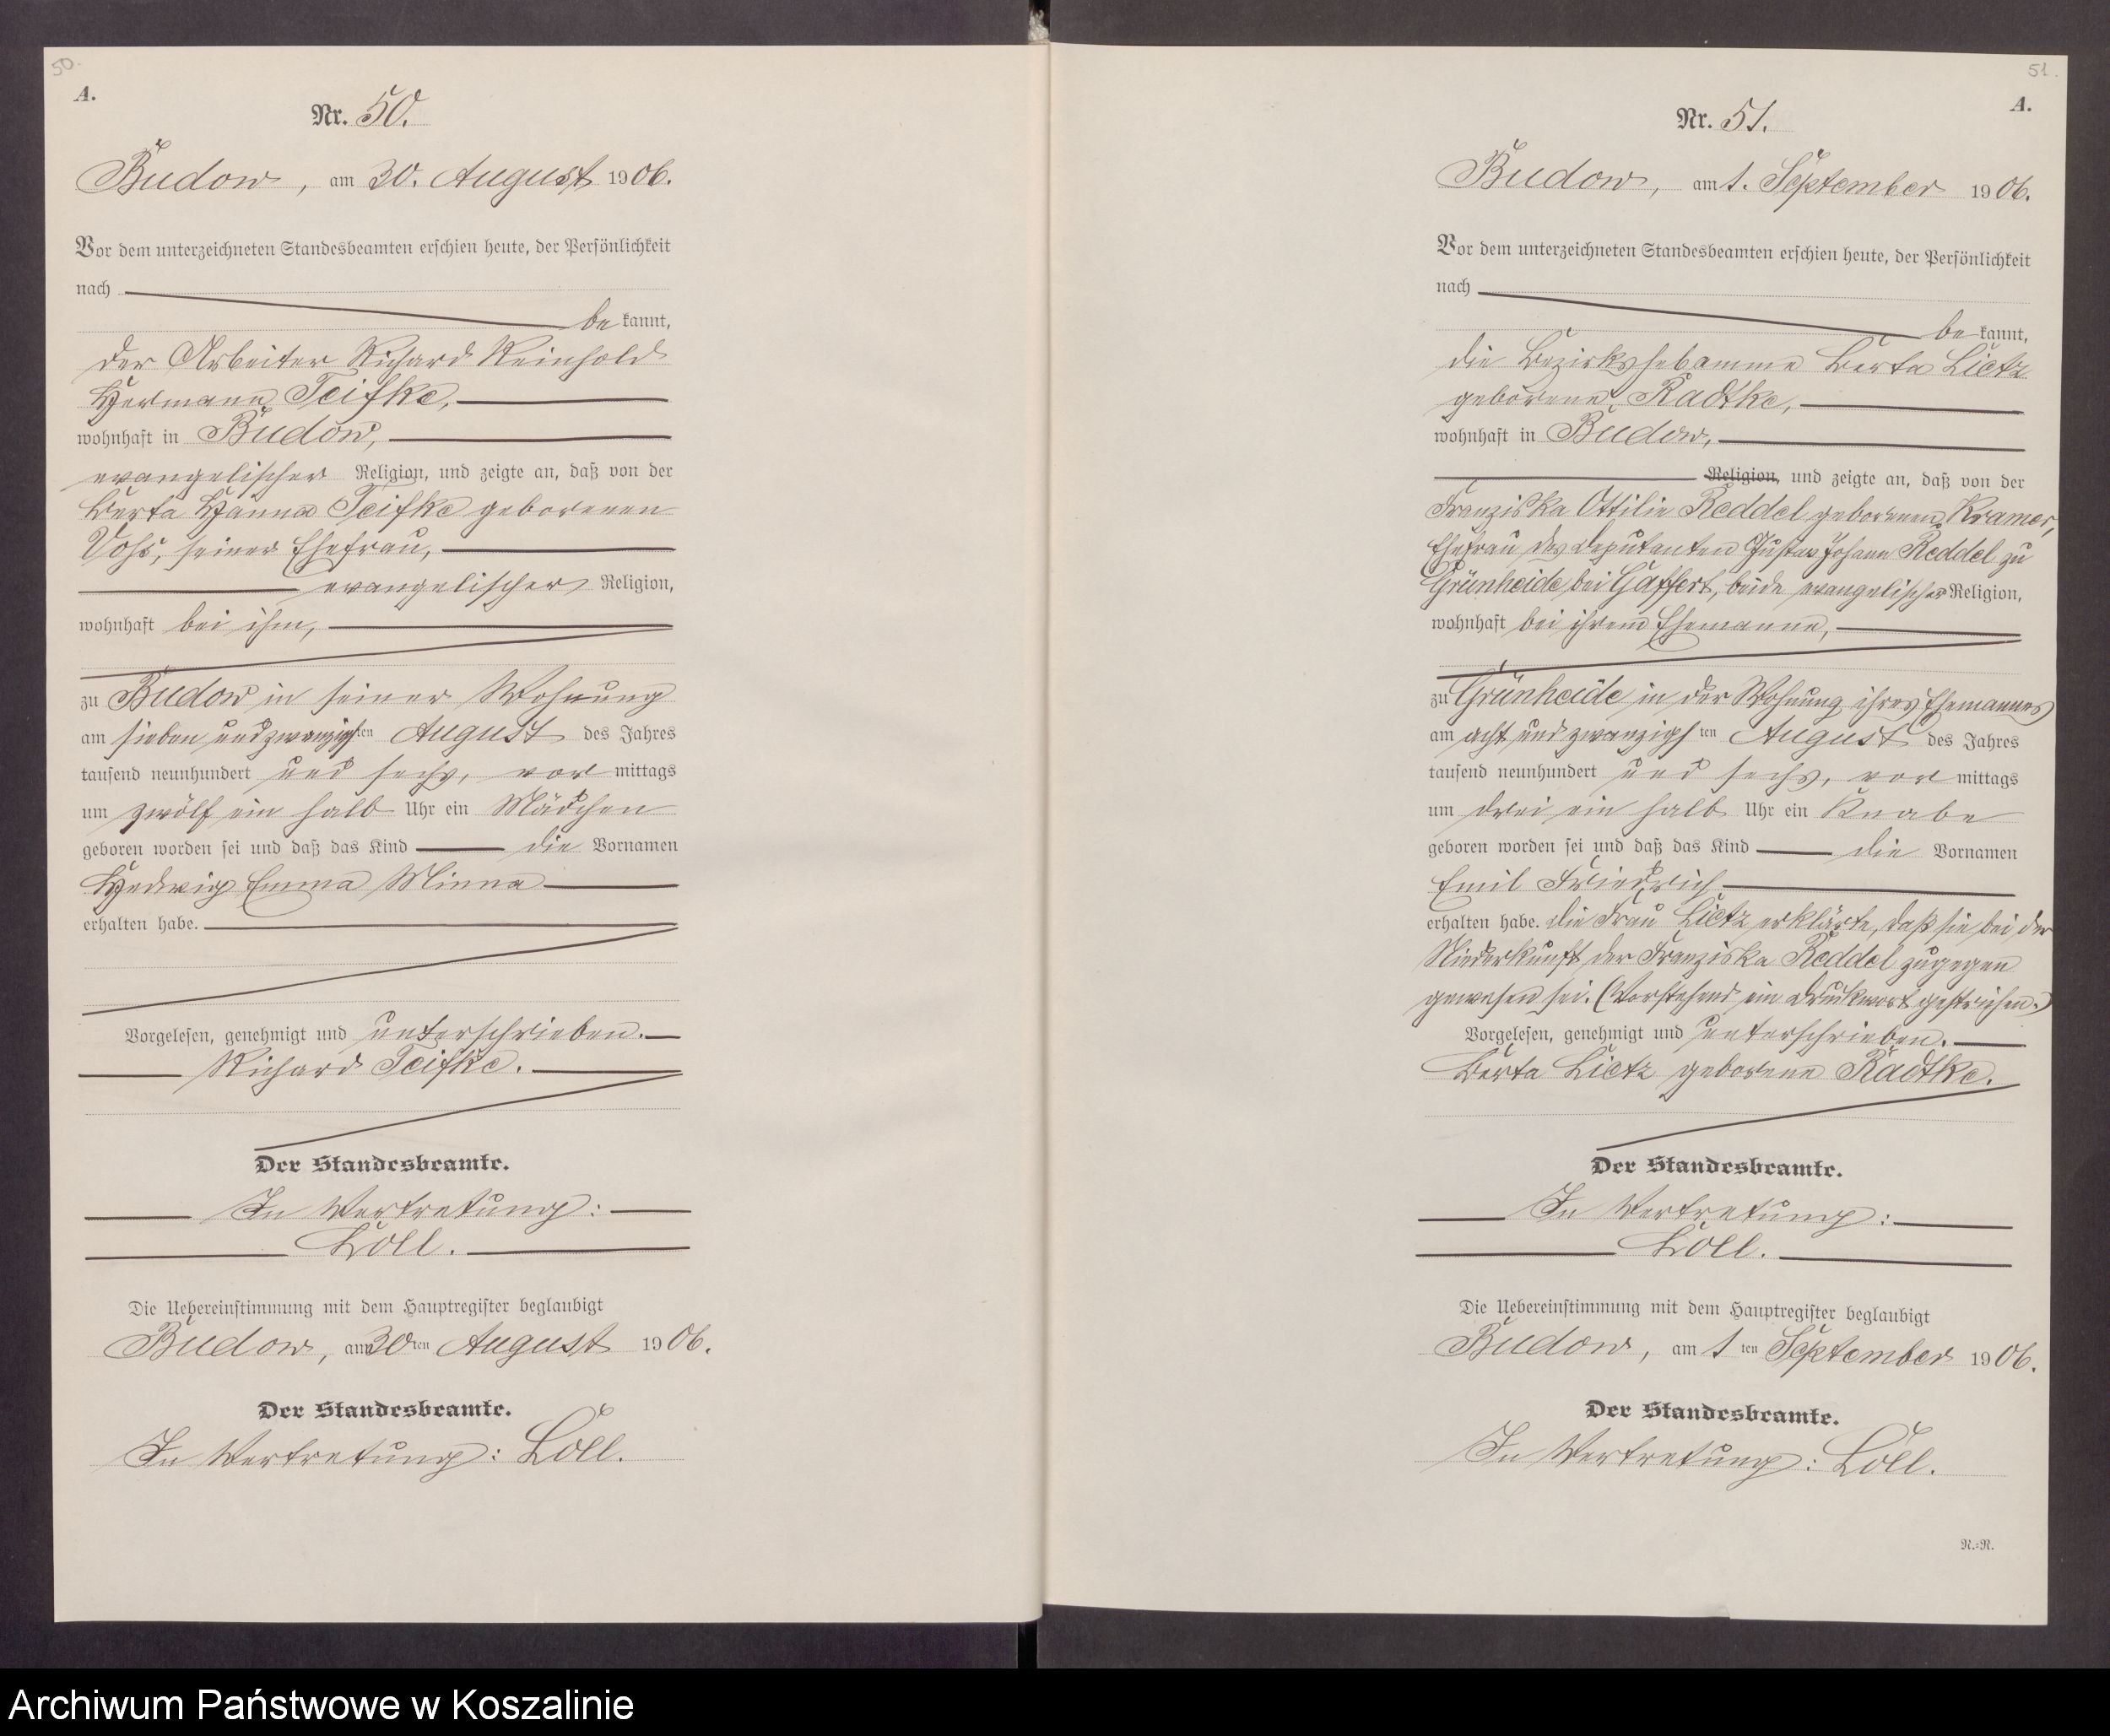 50.
A.
Nr. 50.
Budow, am 30. August 1906.
Vor dem unterzeichneten Standesbeamten erschien heute, der Persönlichkeit
nach
be kannt,
der Arbeiter Richard Reinhold
Hermann Teifke,
wohnhaft in Budow,
evangelischer Religion, und zeigte an, daß von der
Berta Hanna Teifke geborenen
Vohs, seiner Ehefrau,
evangelischer Religion,
wohnhaft bei ihm,
zu Budow in seiner Wohnung
am sieben und zwanzigsten August des Jahres
tausend neunhundert und sechs, vor mittags
um zwölf ein halb Uhr ein Mädchen
geboren worden sei und daß das Kind die Vornamen
Hedwig Emma Minna
erhalten habe.
Vorgelesen, genehmigt und unterschrieben.
Richard Teifke.
Der Standesbeamte.
In Vertretung:
Löll.
Die Uebereinstimmung mit dem Hauptregister beglaubigt
Budow, am 30ten August 1906.
Der Standesbeamte.
In Vertretung: Löll.
51.
A.
Nr. 51.
Budow, am 1. September 1906.
Vor dem unterzeichneten Standesbeamten erschien heute, der Persönlichkeit
nach
be kannt,
die Bezirkshebamme Berta Lietz
geborene Radtke,
wohnhaft in Budow,
Religion, und zeigte an, daß von der
Franziska Ottilie Reddel geborenen Kramer,
Ehefrau des Deputanten Gustav Johann Reddel zu
Grünheide bei Gaffert, beide evangelischer Religion,
wohnhaft bei ihrem Ehemanne,
zu Grünheide in der Wohnung ihres Ehemannes
am acht und zwanzigsten August des Jahres
tausend neunhundert und sechs, vor mittags
um drei ein halb Uhr ein Knabe
geboren worden sei und daß das Kind die Vornamen
Emil Friedrich
erhalten habe. Die Frau Lietz erklärte, daß sie bei der
Niederkunft der Franziska Reddel zugegen
gewesen sei. (Vorstehend ein Druckwort gestrichen.)
Vorgelesen, genehmigt und unterschrieben.
Berta Lietz geborene Radtke.
Der Standesbeamte.
In Vertretung:
Löll.
Die Uebereinstimmung mit dem Hauptregister beglaubigt
Budow, am 1 ten September 1906.
Der Standesbeamte.
In Vertretung: Löll.
N.=N.
Archiwum Państwowe w Koszalinie